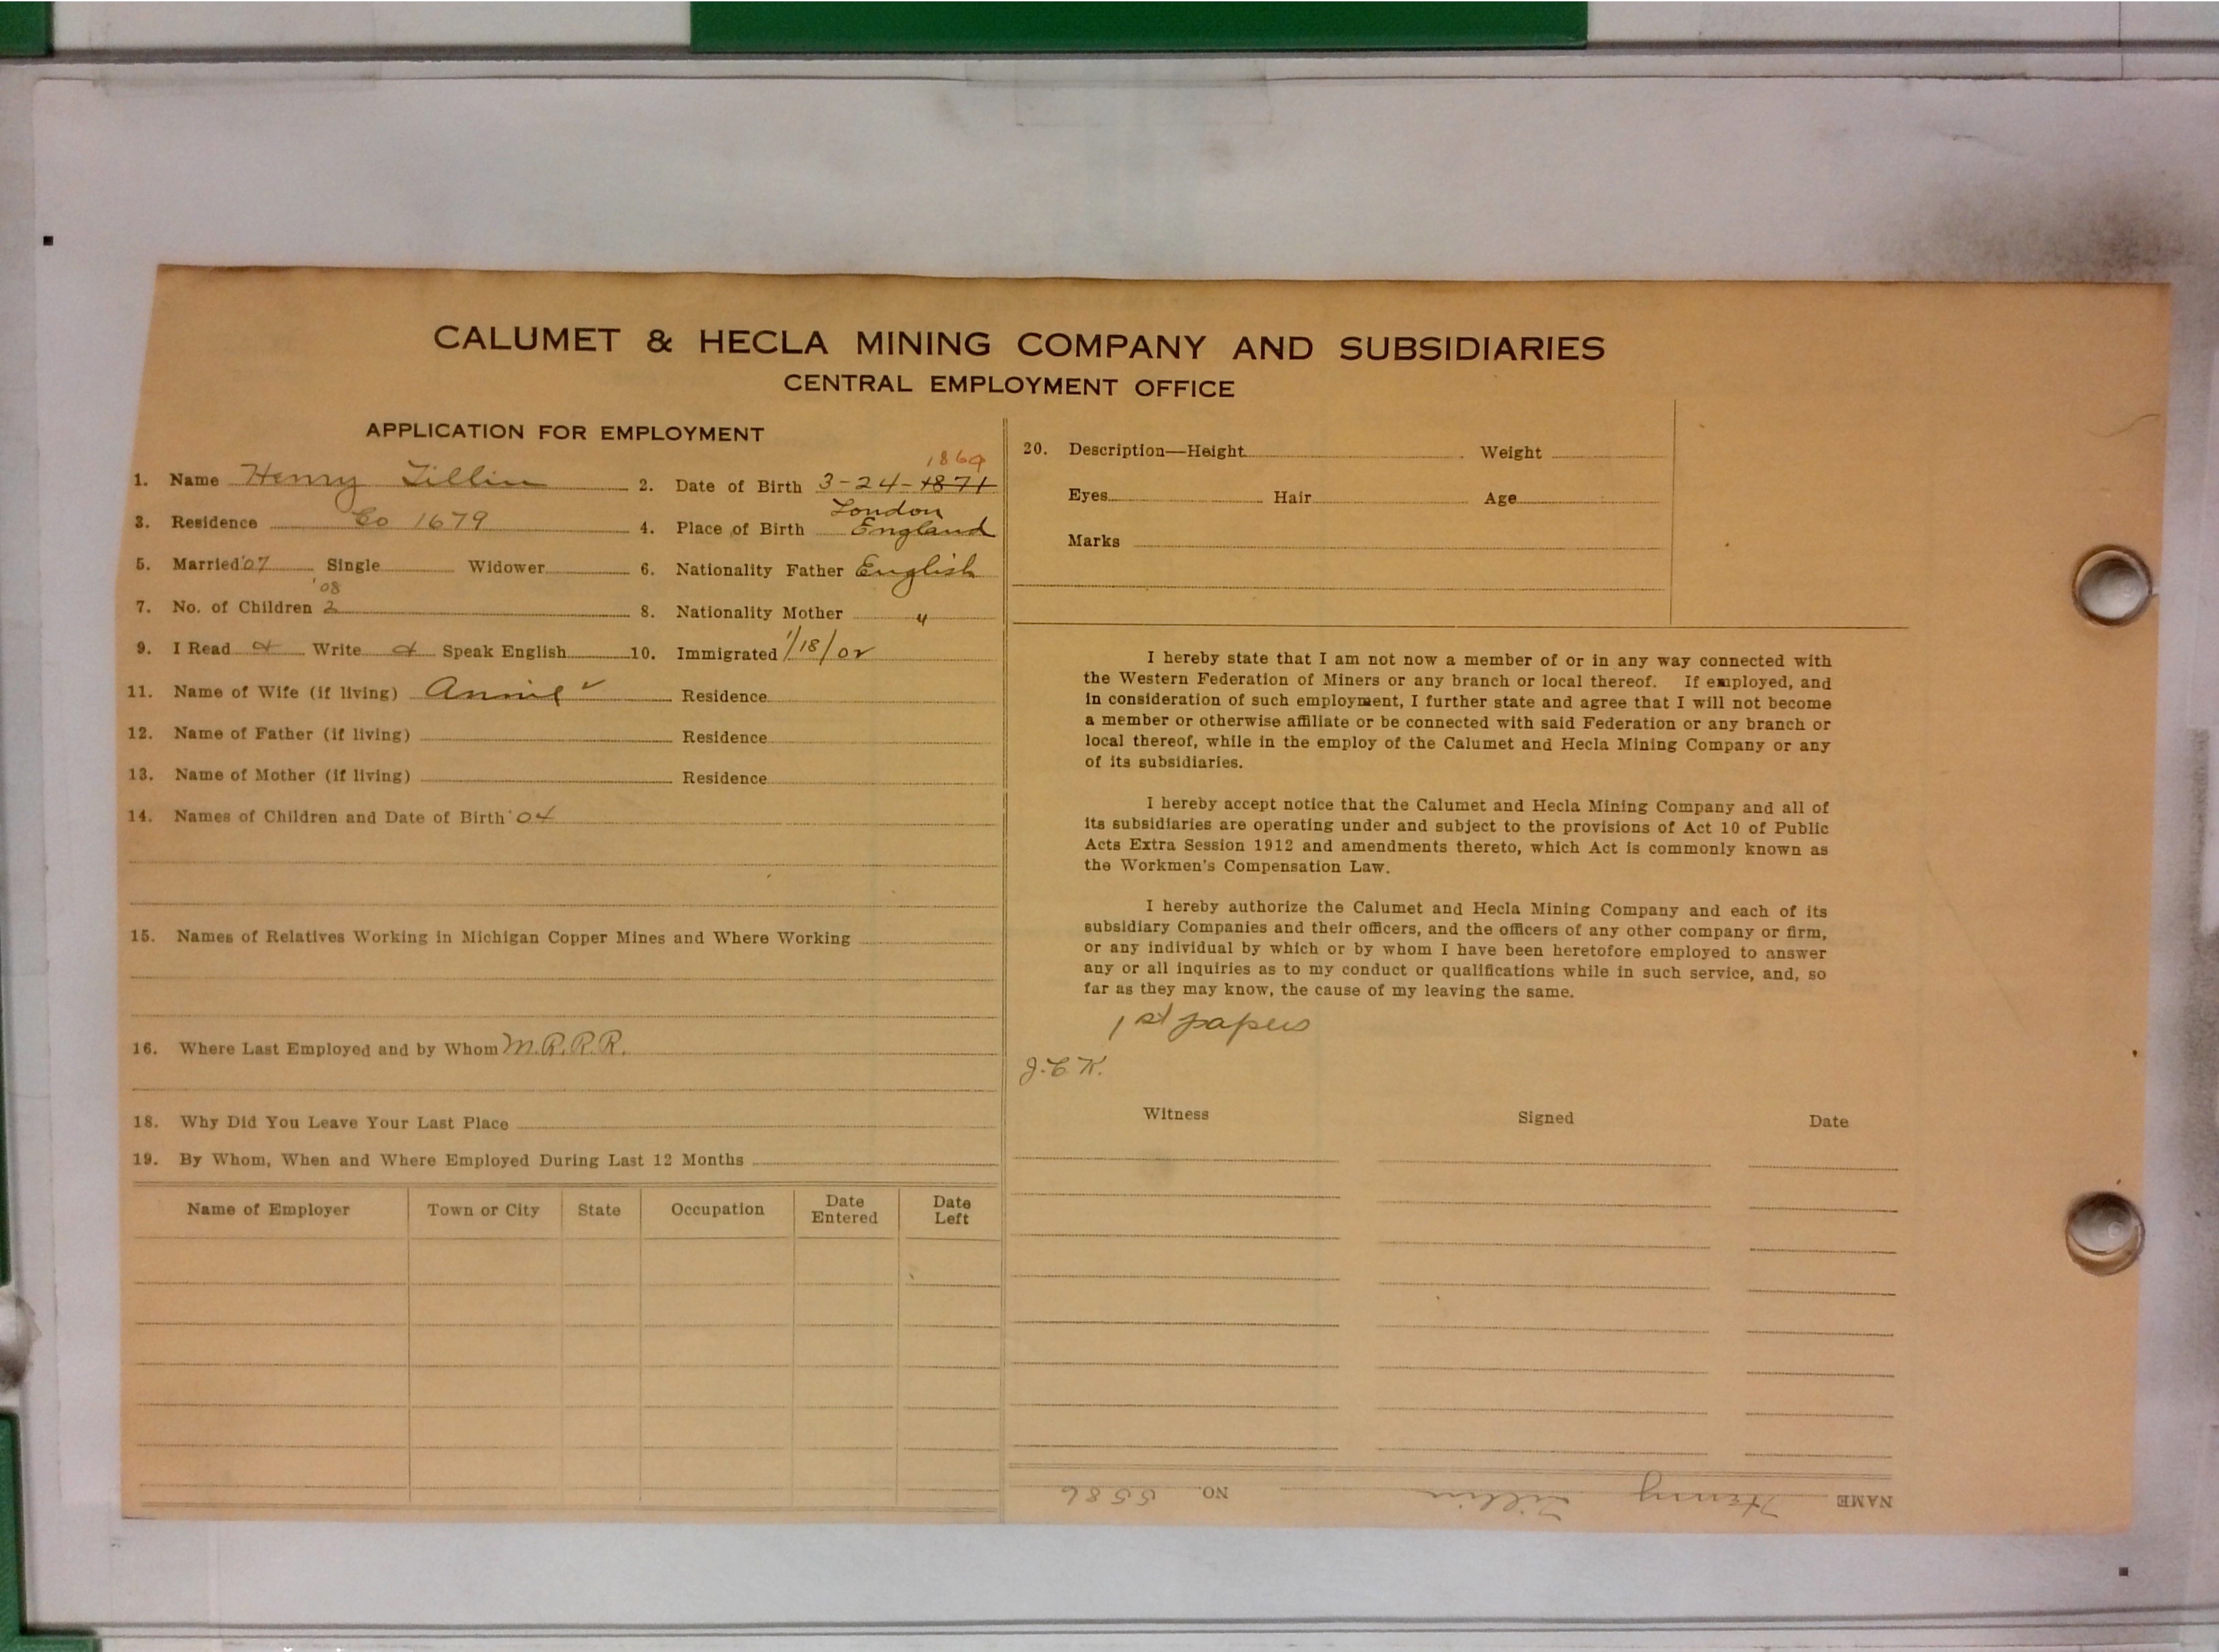 CALUMET & HECLA MINING COMPANY AND SUBSIDIARIES
CENTRAL EMPLOYMENT OFFICE
APPLICATION FOR EMPLOYMENT
1869
1. Name Henry Lillin 2. Date of Birth 3-24-1871
London
3. Residence Co 1679 4. Place of Birth England
5. Married '07 Single Widower 6. Nationality Father English
'08
7. No. of Children 2 8. Nationality Mother "
9. I Read & Write & Speak English 10. Immigrated 1/18/02
11. Name of Wife (if living) Annie Residence
12. Name of Father (if living) Residence
13. Name of Mother (if living) Residence
14. Names of Children and Date of Birth '04
15. Names of Relatives Working in Michigan Copper Mines and Where Working
16. Where Last Employed and by Whom M.R.R.R.
18. Why Did You Leave Your Last Place
19. By Whom, When and Where Employed During Last 12 Months
Name of Employer Town or City State Occupation Date Entered Date Left
20. Description—Height Weight
Eyes Hair Age
Marks
I hereby state that I am not now a member of or in any way connected with
the Western Federation of Miners or any branch or local thereof. If employed, and
in consideration of such employment, I further state and agree that I will not become
a member or otherwise affiliate or be connected with said Federation or any branch or
local thereof, while in the employ of the Calumet and Hecla Mining Company or any
of its subsidiaries.
I hereby accept notice that the Calumet and Hecla Mining Company and all of
its subsidiaries are operating under and subject to the provisions of Act 10 of Public
Acts Extra Session 1912 and amendments thereto, which Act is commonly known as
the Workmen's Compensation Law.
I hereby authorize the Calumet and Hecla Mining Company and each of its
subsidiary Companies and their officers, and the officers of any other company or firm,
or any individual by which or by whom I have been heretofore employed to answer
any or all inquiries as to my conduct or qualifications while in such service, and, so
far as they may know, the cause of my leaving the same.
1st papers
J.C.K.
Witness Signed Date
NAME Henry Lillin NO. 5586